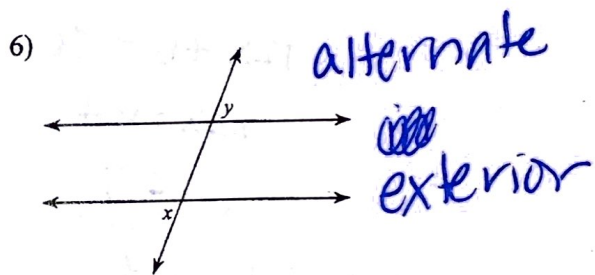 6)
alternate
y
exterior
x